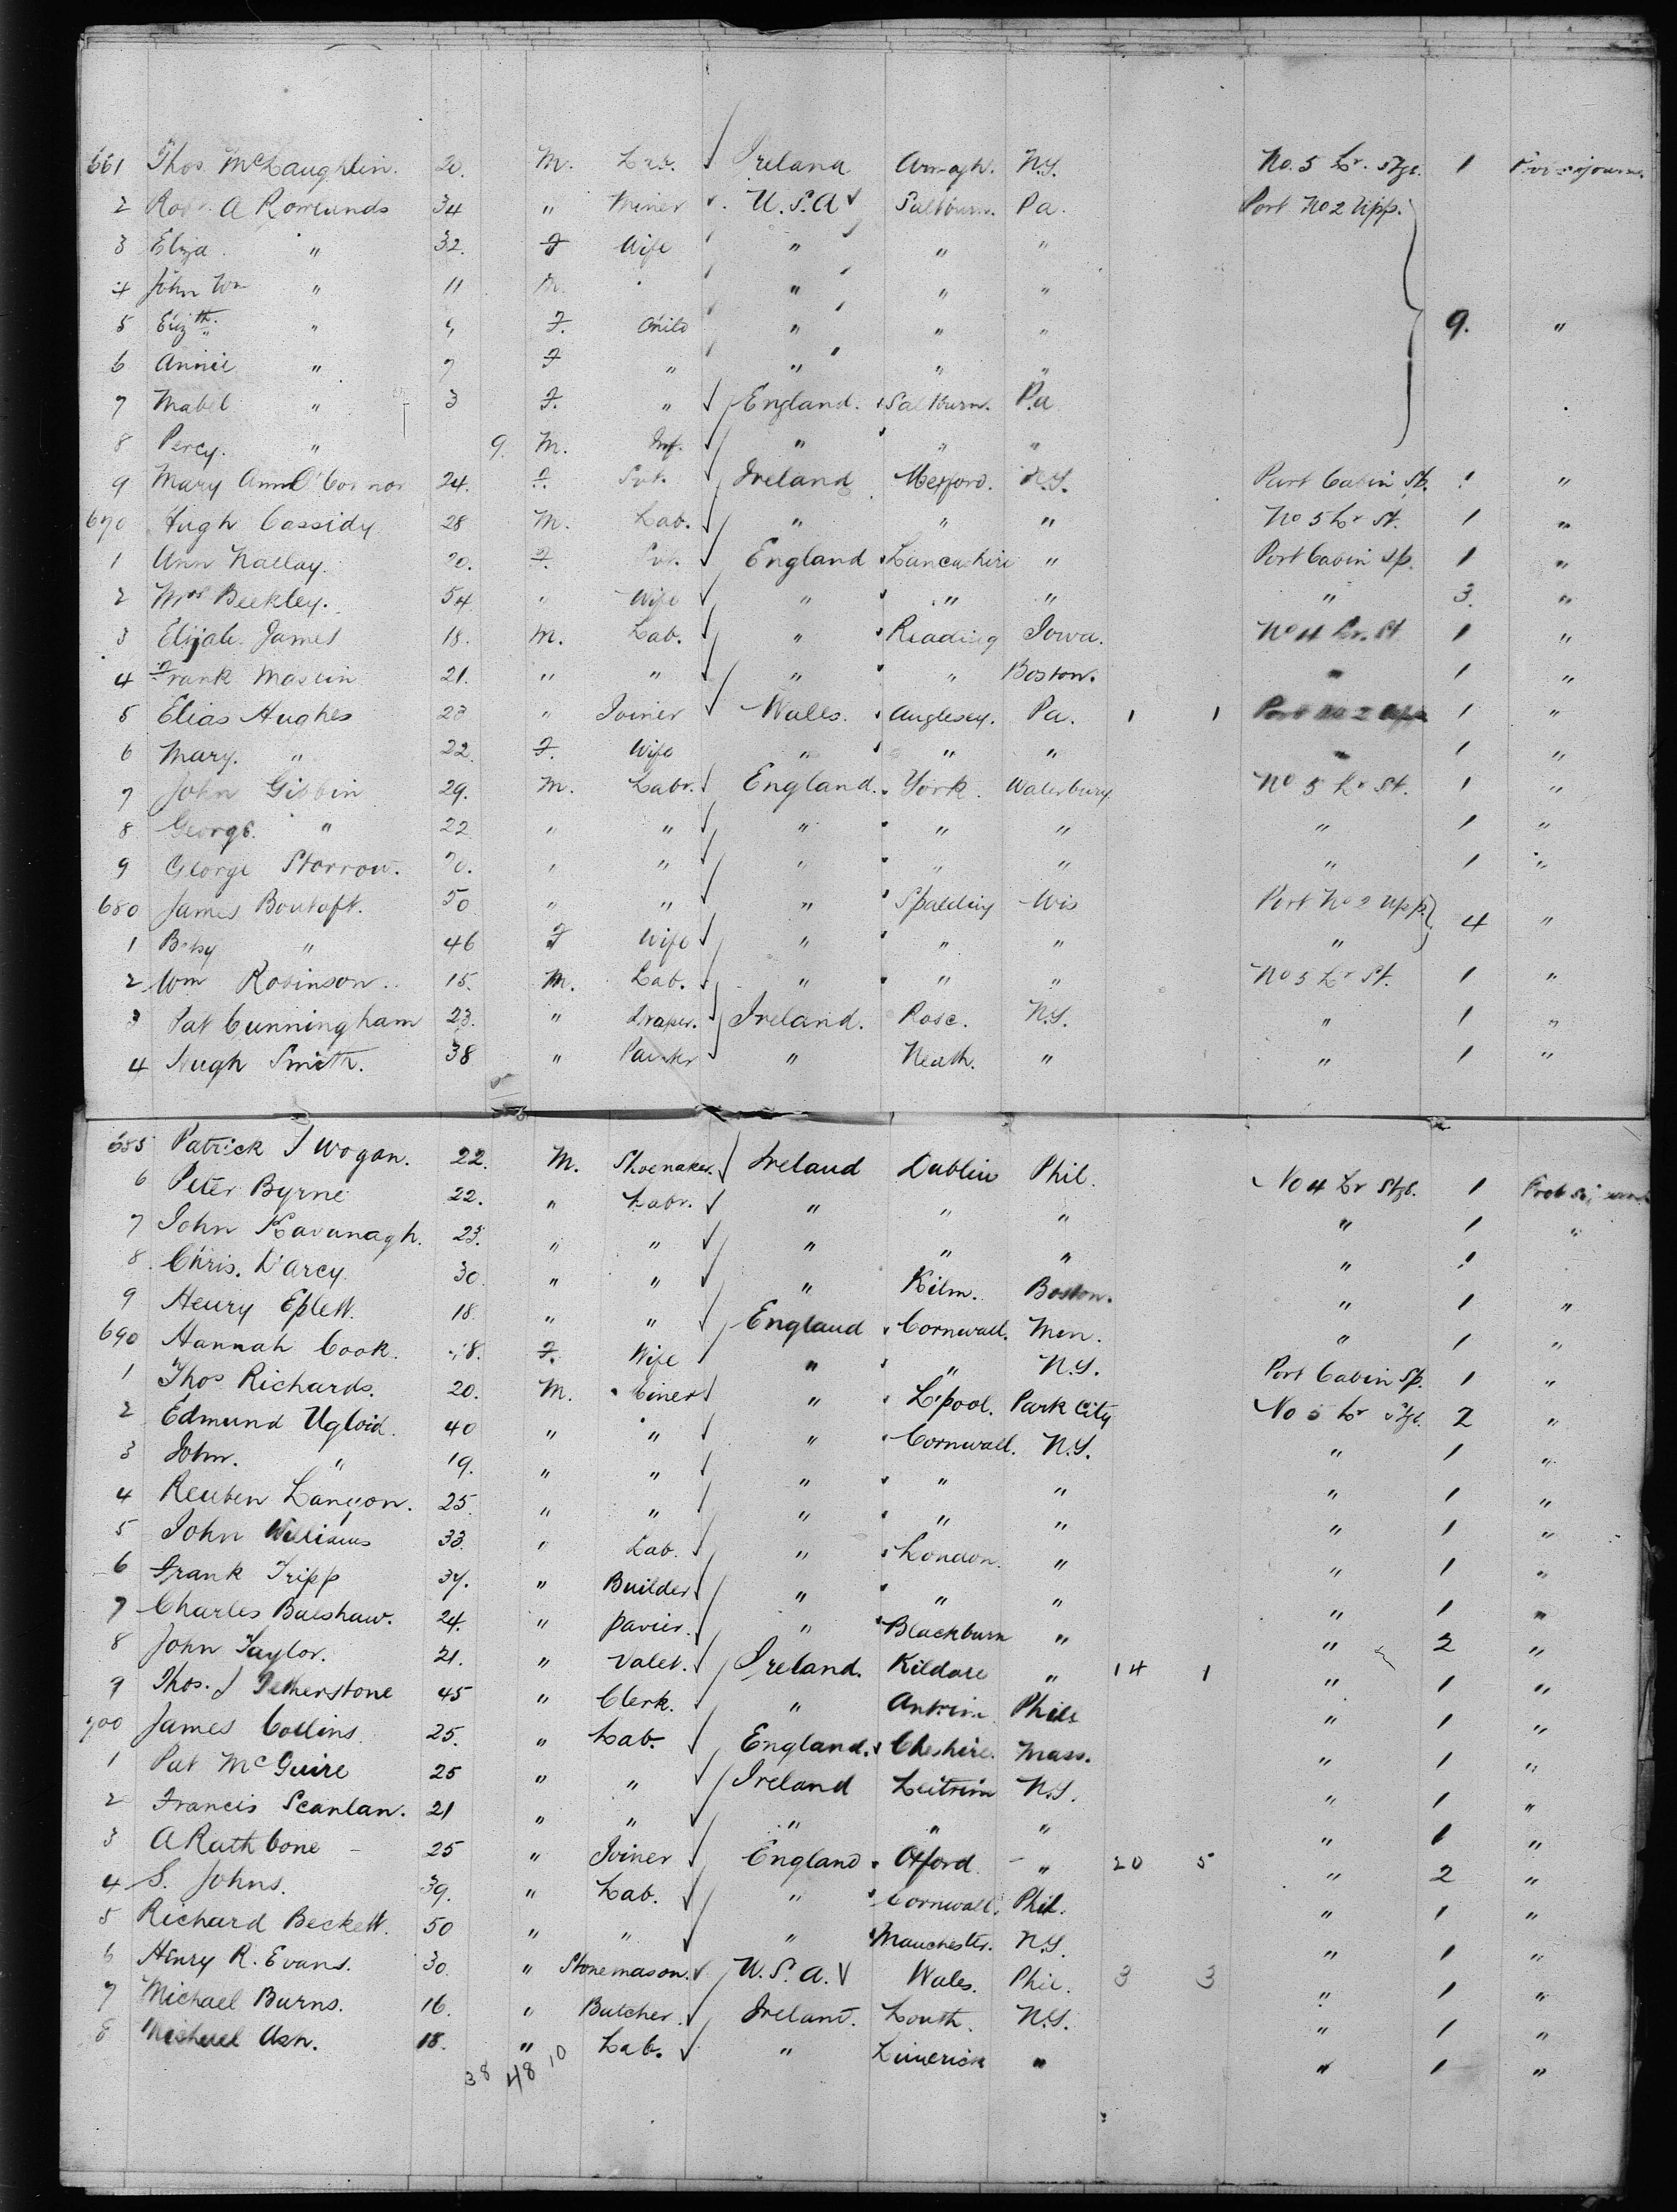 661 Thos. McLaughlin. 20. M. Lab. Ireland Armagh. N.Y. No. 5 Lr. Stge. 1
2 Robt. A Rowlands 34 " Miner U.S.A Saltburn. Pa. Port No 2 Upp.
3 Eliza " 32. F Wife " " "
4 John Wm " 11 M. " " "
5 Eliz th. " 9 F. Child " " " 9. "
6 Annie " 7 F " " " "
7 Mabel " 3 F. " England. Saltburn. Pa
8 Percy. " 9. M. Inf. " " "
9 Mary Ann O'Connor 24. F. Svt. Ireland Wexford. N.Y. Port Cabin Sp. 1 "
670 Hugh Cassidy 28 M. Lab. " " " No 5 Lr St. 1 "
1 Ann Nallay. 20. F. Svt. England Lancashire " Port Cabin Sp. 1 "
2 Mrs Beekley. 54 " Wife " " " " 3. "
3 Elijah James 18. M. Lab. " Reading Iowa. No 4 Lr. St. 1 "
4 Frank Maslin 21. " " " " Boston. " 1 "
5 Elias Hughes 23 " Joiner Wales. Anglesey. Pa. 1 1 Port No 2 Upp 1 "
6 Mary. " 22. F. Wife " " " " 1 "
7 John Gibbin 29. M. Labr. England. York. Waterbury No 5 Lr St. 1 "
8 George. " 22 " " " " " " 1 "
9 George Storrow. 20. " " " " " " 1 "
680 James Boutoft. 50 " " " Spalding Wis Port No 2 Upp. 4 "
1 Betsy " 46 F Wife " " " "
2 Wm Robinson. 15. M. Lab. " " " No 5 Lr St. 1 "
3 Pat Cunningham 23. " Draper. Ireland. Rosc. N.Y. " 1 "
4 Hugh Smith. 38 " " Meath. " " 1 "
685 Patrick J Wogan. 22. M. Shoemaker. Ireland Dublin Phil. No 4 Lr Stge. 1
6 Peter Byrne 22. " Labr. " " " " 1 "
7 John Kavanagh. 23. " " " " " " 1
8 Chris. D'Arcy. 30. " " " Kilm. Boston. " 1 "
9 Henry Eplett. 18. " " England Cornwall. Min. " 1 "
690 Hannah Cook. 28. F. Wife " " N.Y. Port Cabin Sp. 1 "
1 Thos Richards. 20. M. Miner " L'pool. Park City No 5 Lr Stge. 2 "
2 Edmund Ugloid. 40 " " " Cornwall. N.Y. " 1 "
3 John. " 19. " " " " " " 1 "
4 Reuben Langon. 25 " " " " " " 1 "
5 John Williams 33. " Lab. " London. " " 1 "
6 Frank Tripp 37. " Builder " " " " 1 "
7 Charles Balshaw. 24. " Pavier. " Blackburn " " 2 "
8 John Taylor. 21. " Valet. Ireland. Kildare " 14 1 " 1 "
9 Thos. J Fetherstone 45 " Clerk. " Antrim Phila " 1 "
700 James Collins 25. " Lab. England. Cheshire. Mass. " 1 "
1 Pat McGuire 25 " " Ireland Leitrim N.Y. " 1 "
2 Francis Scanlan. 21 " " " " " " 1 "
3 A Rathbone 25 " Joiner England Oxford. " 20 5 " 2 "
4 S. Johns. 39. " Lab. " Cornwall. Phil. " 1 "
5 Richard Beckett. 50 " " " Manchester. N.Y. " 1 "
6 Henry R. Evans. 30. " Stonemason. U.S.A. Wales. Phil. 3 3 " 1 "
7 Michael Burns. 16. " Butcher. Ireland. Louth. N.Y. " 1 "
8 Michael Ash. 18. " Lab. " Limerick " " 1 "
38 48 10